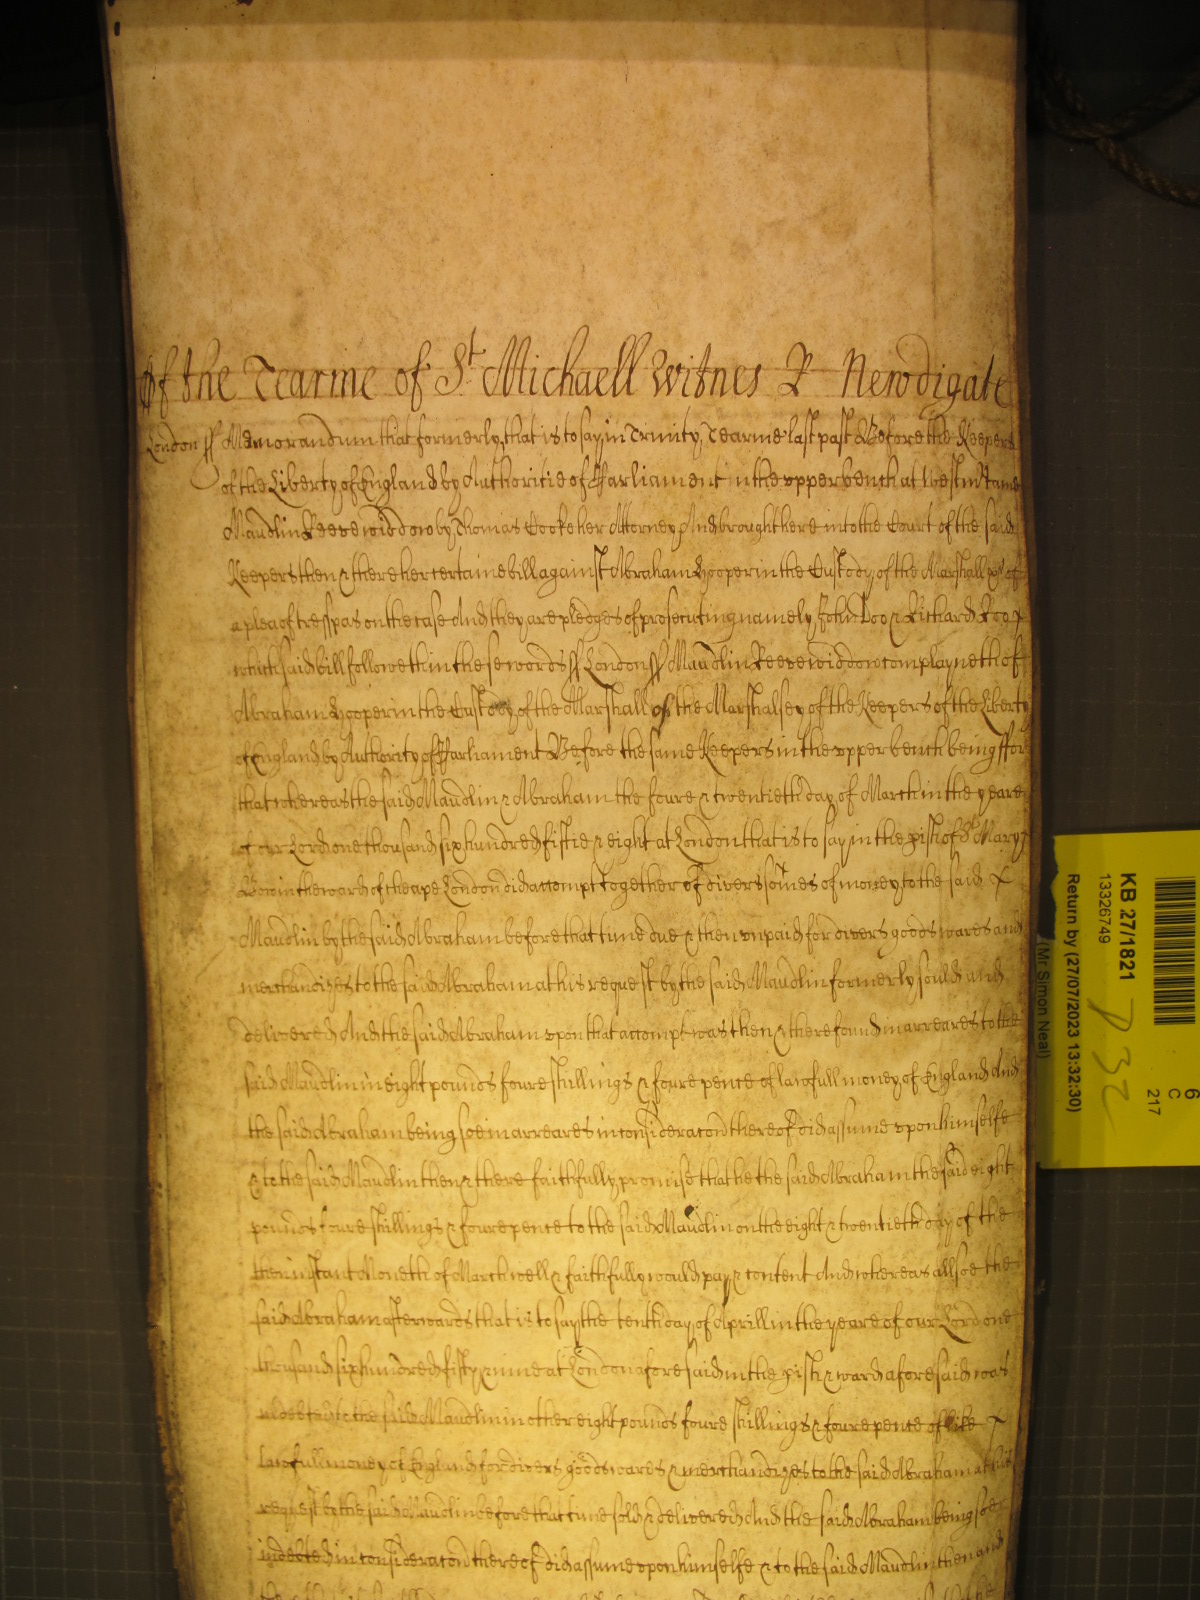 Of the Tearme of St Michaell Witnes R Newdigate
London ss Memorandum that formerly that is to say in Trinity Tearme last past Before the Keepers
of the Liberty of England by Authoritie of Parliament in the upper bench at Westm Came
Maudlin Reeve widdow by Thomas Cooke her Attorney And brought here into the Court of the said
Keepers then & there her certaine bill against Abraham Hooper in the Custody of the Marshall &c of
a plea of tresspas on the case And they are pledges of prosecuting namely John Doo & Richard Roo
which said bill followeth in these words ss London ss Maudlin Reeve widdow complayneth of
Abraham Hooper in the Custody of the Marshall of the Marshalsey of the Keepers of the Liberty
of England by Authority of Parliament Before the same Keepers in the upper bench being ffor
that whereas the said Maudlin & Abraham the foure & twentieth day of March in the yeare
of our Lord one thousand six hundred fiftie & eight at London that is to say in the pish of St Mary
Bow in the ward of Cheape London did accompt together of divers somes of money to the said
Maudlin by the said Abraham before that time due & then unpaid for divers goods wares and
merchandizes to the said Abraham at his request by the said Maudlin formerly sould and
delivered And the said Abraham upon that accompt was then & there found in arreares to the
said Maudlin in eight pounds foure shillings & foure pence of lawfull money of England And
the said Abraham being soe in arreares in consideracon thereof did assume upon himselfe
& to the said Maudlin then & there faithfully promise that he the said Abraham the said eight
pounds foure shillings & foure pence to the said Maudlin on the eight & twentieth day of the
then instant Moneth of March well & faithfully would pay & content And whereas allsoe the
said Abraham afterwards that is to say the tenth day of Aprill in the yeare of our Lord one
thousand six hundred fifty & nine at London aforesaid in the pish & ward aforesaid was
indebted to the said Maudlin in other eight pounds foure shillings & foure pence of like
lawfull money of England for divers goods wares & merchandizes to the said Abraham at his
request by the said Maudlin before that time sold & delivered And the said Abraham being soe
indebted in consideracon thereof did assume upon himselfe & to the said Maudlin then and
KB 27/1821
13326749
Return by (27/07/2023 13:32:30)
(Mr Simon Neal)
6
C
217
P 32